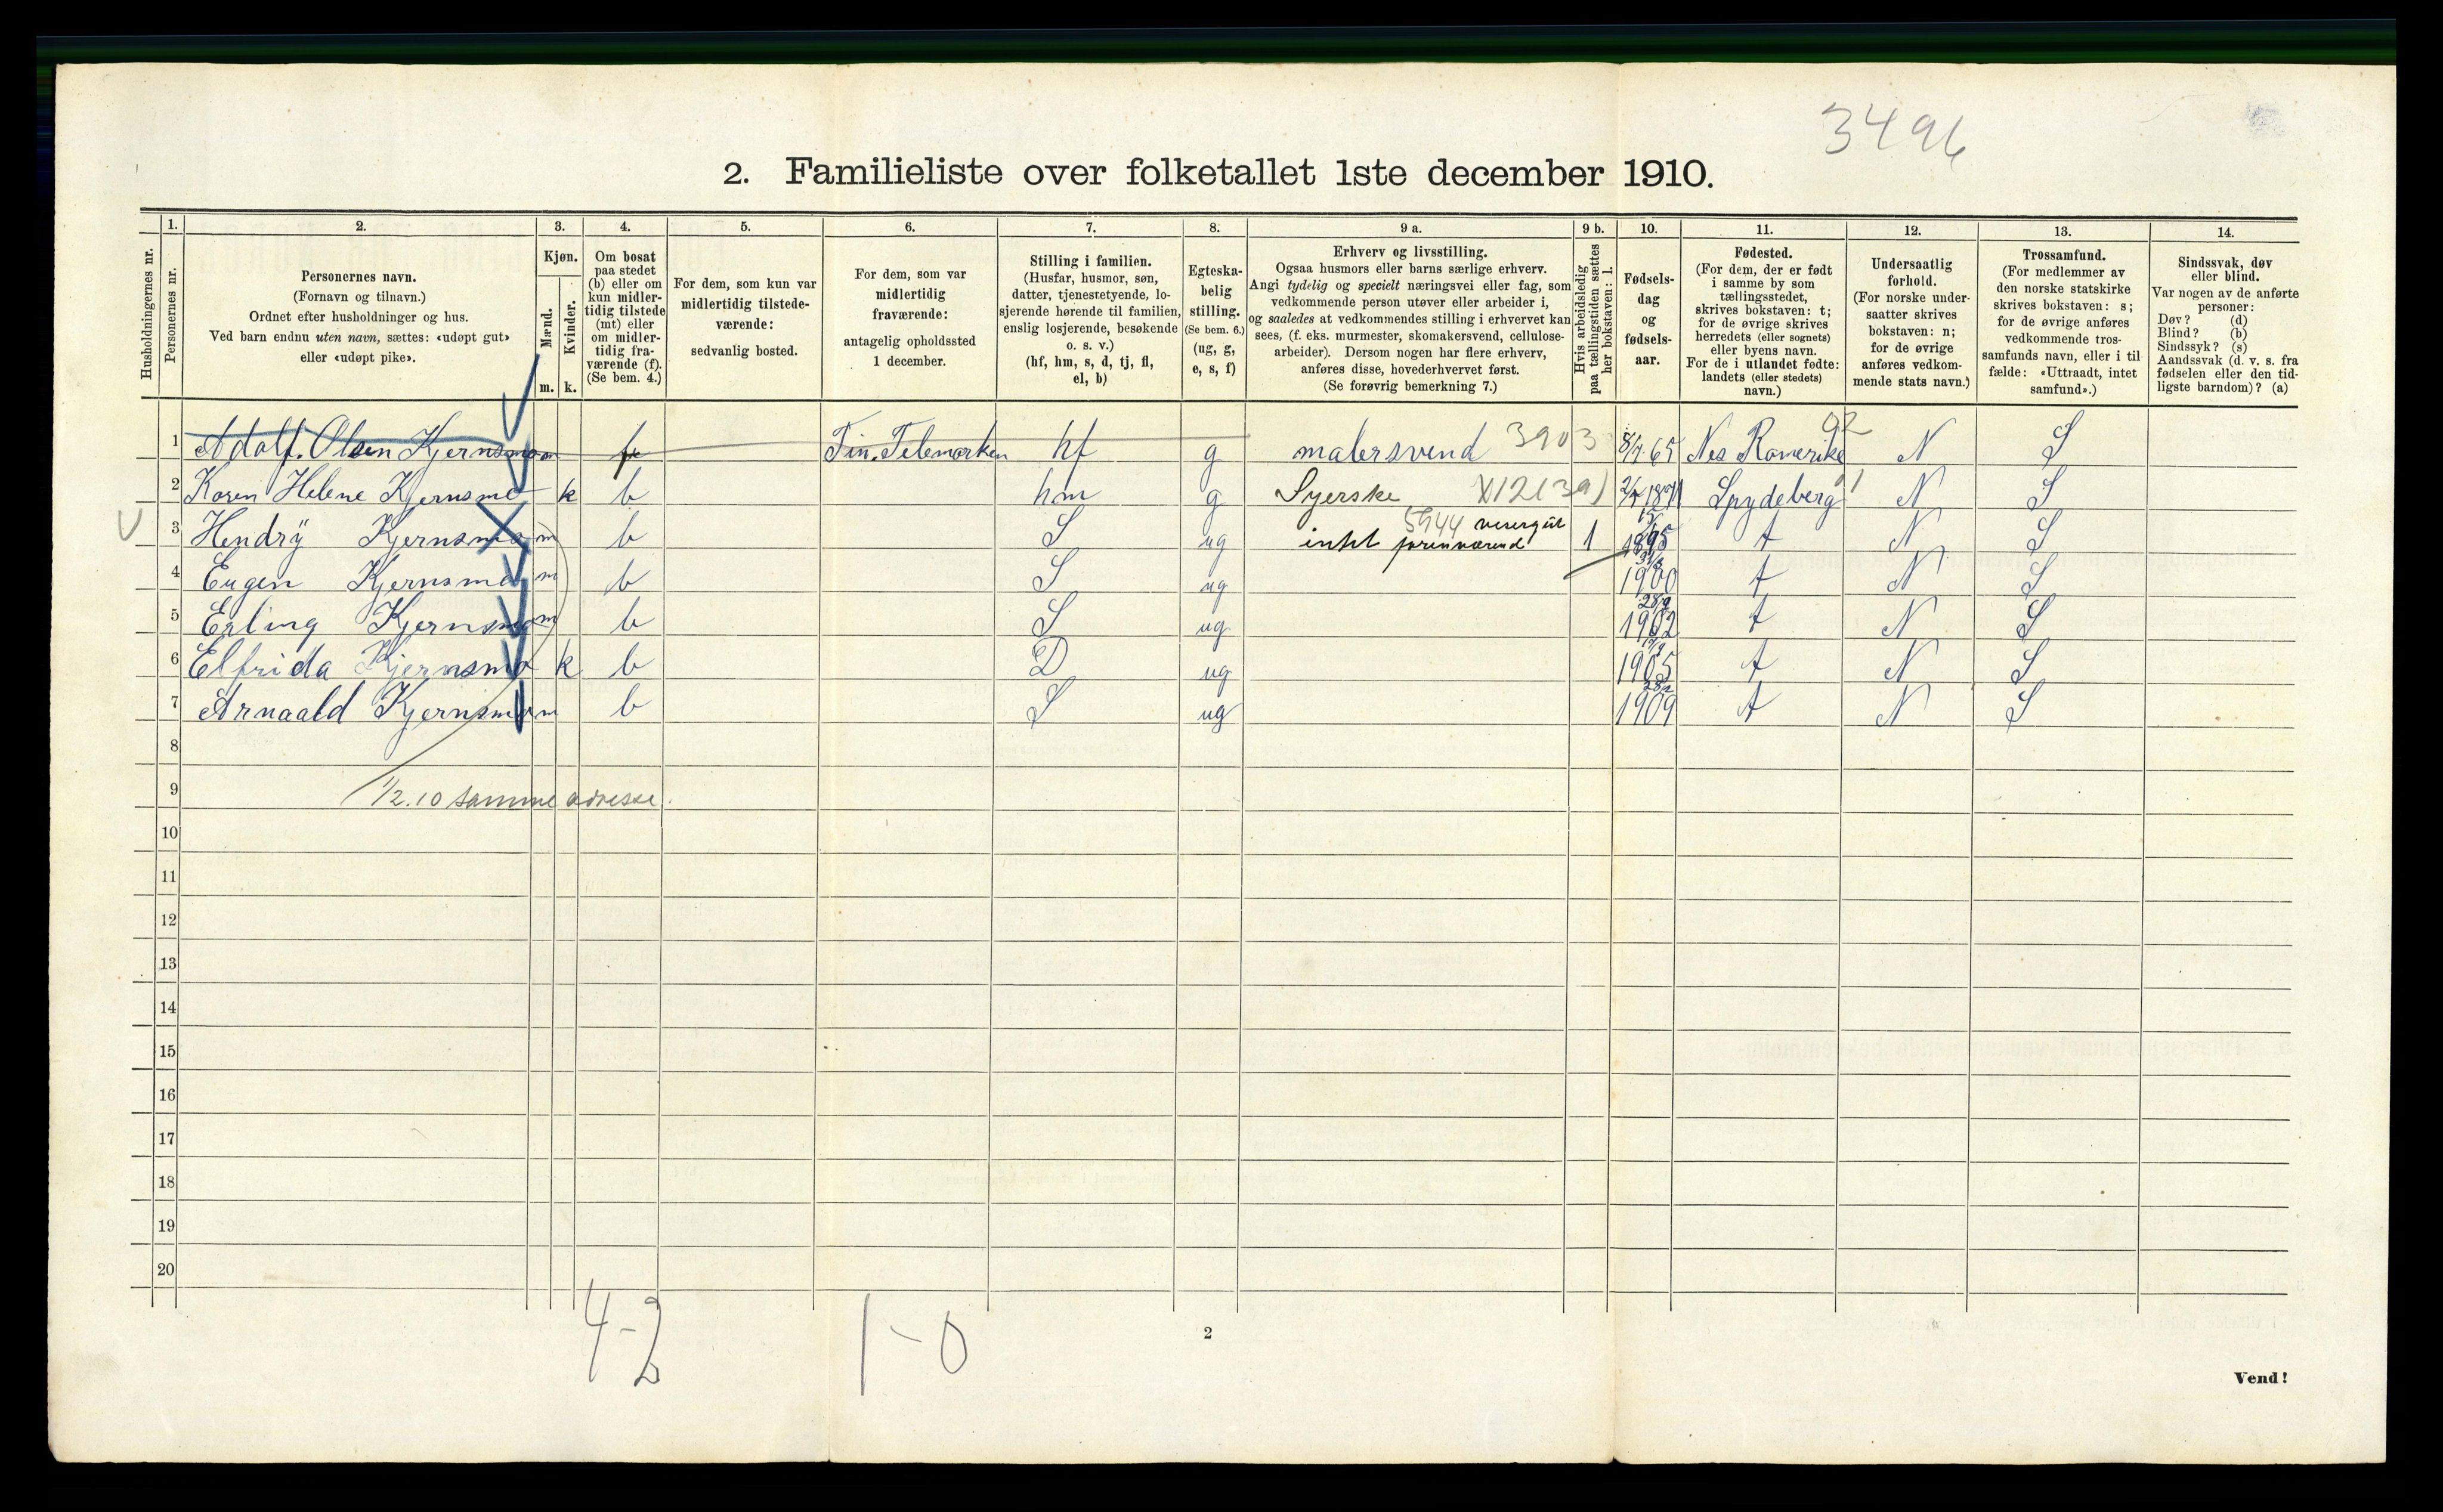 3496
2. Familieliste over folketallet 1ste december 1910.
Husholdningernes nr.
1. Personernes nr.
2. Personernes navn. (Fornavn og tilnavn.) Ordnet efter husholdninger og hus. Ved barn endnu uten navn, sættes: «udøpt gut» eller «udøpt pike».
3. Kjøn. Mænd. m. Kvinder. k.
4. Om bosat paa stedet (b) eller om kun midler-tidig tilstede (mt) eller om midler-tidig fra-værende (f). (Se bem. 4.)
5. For dem, som kun var midlertidig tilstede-værende: sedvanlig bosted.
6. For dem, som var midlertidig fraværende: antagelig opholdssted 1 december.
7. Stilling i familien. (Husfar, husmor, søn, datter, tjenestetyende, lo-sjerende hørende til familien, enslig losjerende, besøkende o. s. v.) (hf, hm, s, d, tj, fl, el, b)
8. Egteska-belig stilling. (Se bem. 6.) (ug, g, e, s, f)
9 a. Erhverv og livsstilling. Ogsaa husmors eller barns særlige erhverv. Angi tydelig og specielt næringsvei eller fag, som vedkommende person utøver eller arbeider i, og saaledes at vedkommendes stilling i erhvervet kan sees, (f. eks. murmester, skomakersvend, cellulose-arbeider). Dersom nogen har flere erhverv, anføres disse, hovederhvervet først. (Se forøvrig bemerkning 7.)
9 b. Hvis arbeidsledig paa tællingstiden sættes her bokstaven: l.
10. Fødsels-dag og fødsels-aar.
11. Fødested. (For dem, der er født i samme by som tællingsstedet, skrives bokstaven: t; for de øvrige skrives herredets (eller sognets) eller byens navn. For de i utlandet fødte: landets (eller stedets) navn.)
12. Undersaatlig forhold. (For norske under-saatter skrives bokstaven: n; for de øvrige anføres vedkom-mende stats navn.)
13. Trossamfund. (For medlemmer av den norske statskirke skrives bokstaven: s; for de øvrige anføres vedkommende tros-samfunds navn, eller i til-fælde: «Uttraadt, intet samfund».)
14. Sindssvak, døv eller blind. Var nogen av de anførte personer: Døv? (d) Blind? (b) Sindssyk? (s) Aandssvak (d. v. s. fra fødselen eller den tid-ligste barndom)? (a)
1 Adolf. Olsen Kjernsmo m Tin. Telemarken hf g malersvend 3903 8/7 65 Nes Romerike 92 N S
2 Karen Helene Kjernsmo k b hm g Syerske Spydeberg N S
3 Hendry Kjernsmo m b S ug 5944 visergut intet 1 1895 t N S
4 Eugen Kjernsmo m b S ug 1900 t N S
5 Erling Kjernsmo m b S ug 28/9 1902 t N S
6 Elfrida Kjernsmo k b D ug 1905 t N S
7 Arnaald Kjernsmo m b S ug 1909 t N S
8
9 1/2.10 samme adresse.
10
11
12
13
14
15
16
17
18
19
20
4-2 1-0
2
Vend!